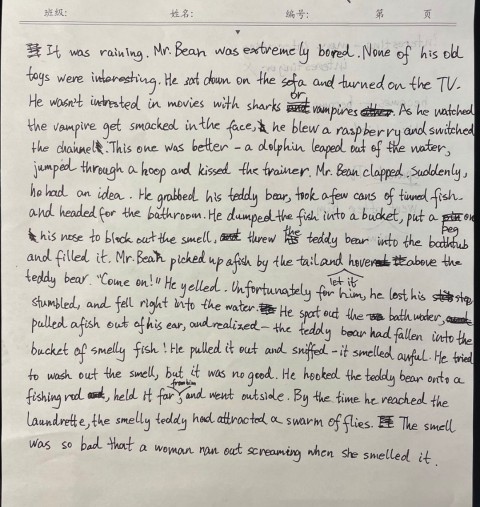 班级: 姓名: 编号: 第 页
It was raining. Mr. Bean was extremely bored. None of his old
toys were interesting. He sat down on the sofa and turned on the TV.
He wasn't intrested in movies with sharks or vampires. As he watched
the vampire get smacked in the face, he blew a raspberry and switched
the channel. This one was better – a dolphin leaped out of the water,
jumped through a hoop and kissed the trainer. Mr. Bean clapped. Suddenly,
he had an idea. He grabbed his teddy bear, took a few cans of tinned fish
and headed for the bathroom. He dumped the fish into a bucket, put a peg on
his nose to block out the smell, threw the teddy bear into the bathtub
and filled it. Mr. Bean picked up a fish by the tail and let it hover above the
teddy bear. "Come on!" He yelled. Unfortunately for him, he lost his step
stumbled, and fell right into the water. He spat out the bath water,
pulled a fish out of his ear, and realized – the teddy bear had fallen into the
bucket of smelly fish! He pulled it out and sniffed – it smelled awful. He tried
to wash out the smell, but it was no good. He hooked the teddy bear onto a
fishing rod, held it far from him and went outside. By the time he reached the
laundrette, the smelly teddy had attracted a swarm of flies. The smell
was so bad that a woman ran out screaming when she smelled it.